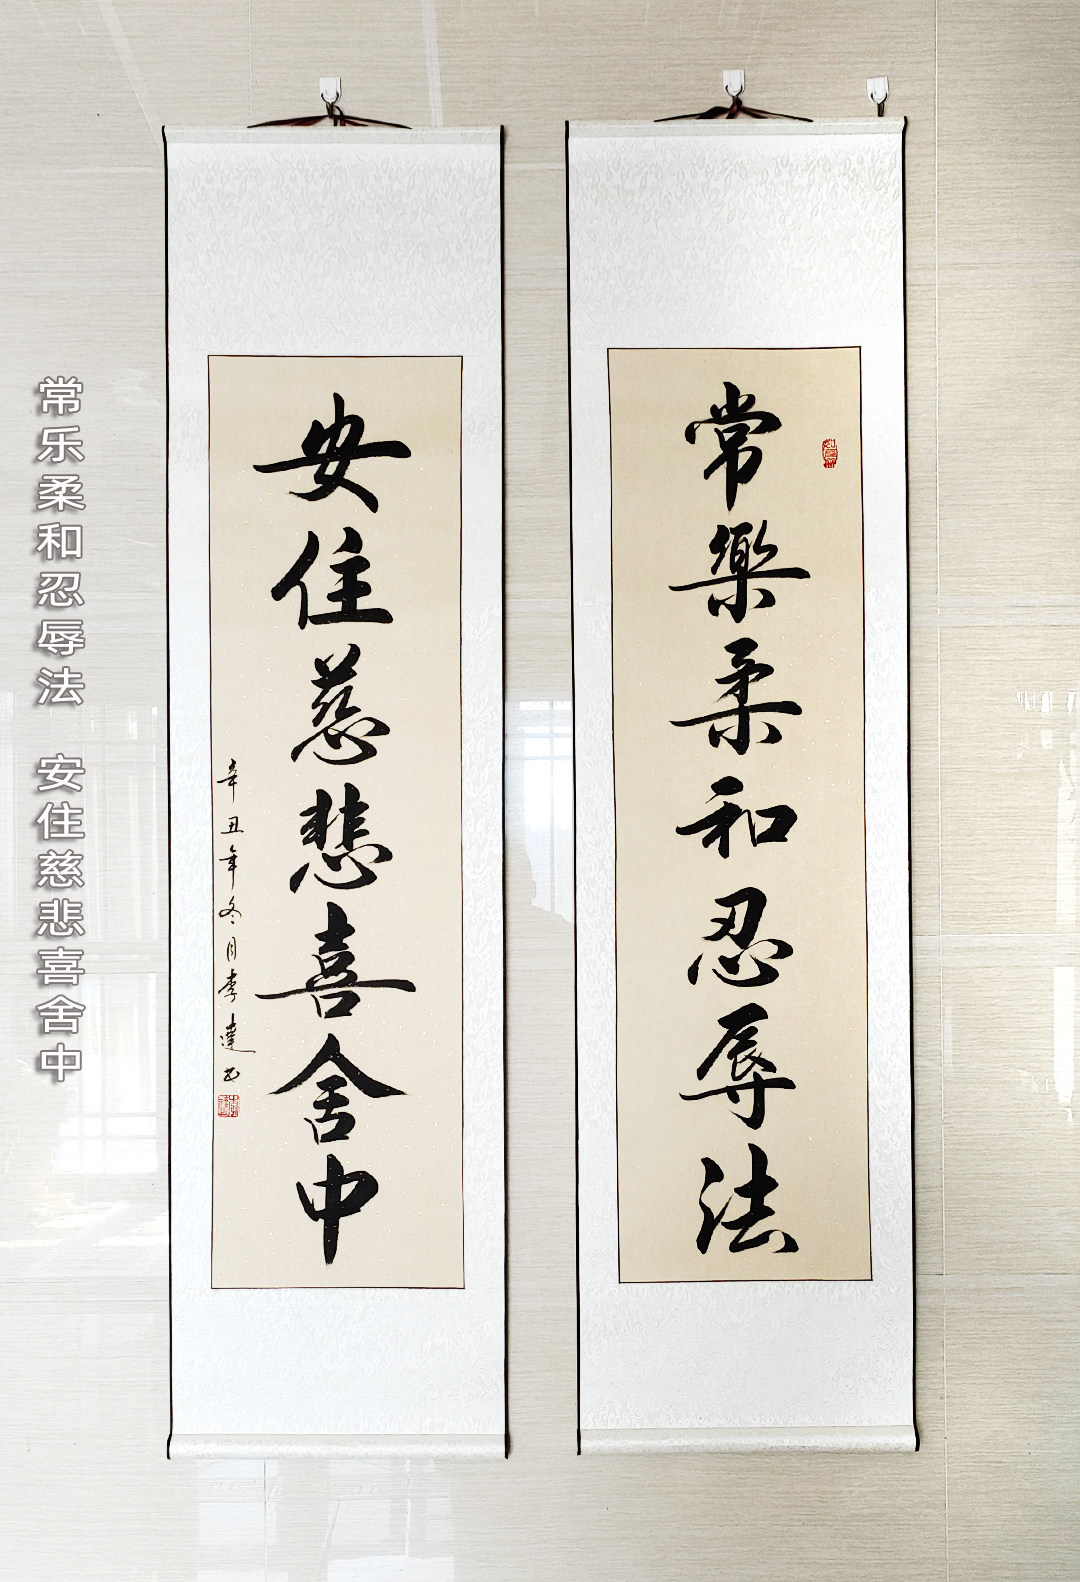 常樂柔和忍辱法
安住慈悲喜舍中
辛丑年冬月李達书
常乐柔和忍辱法 安住慈悲喜舍中